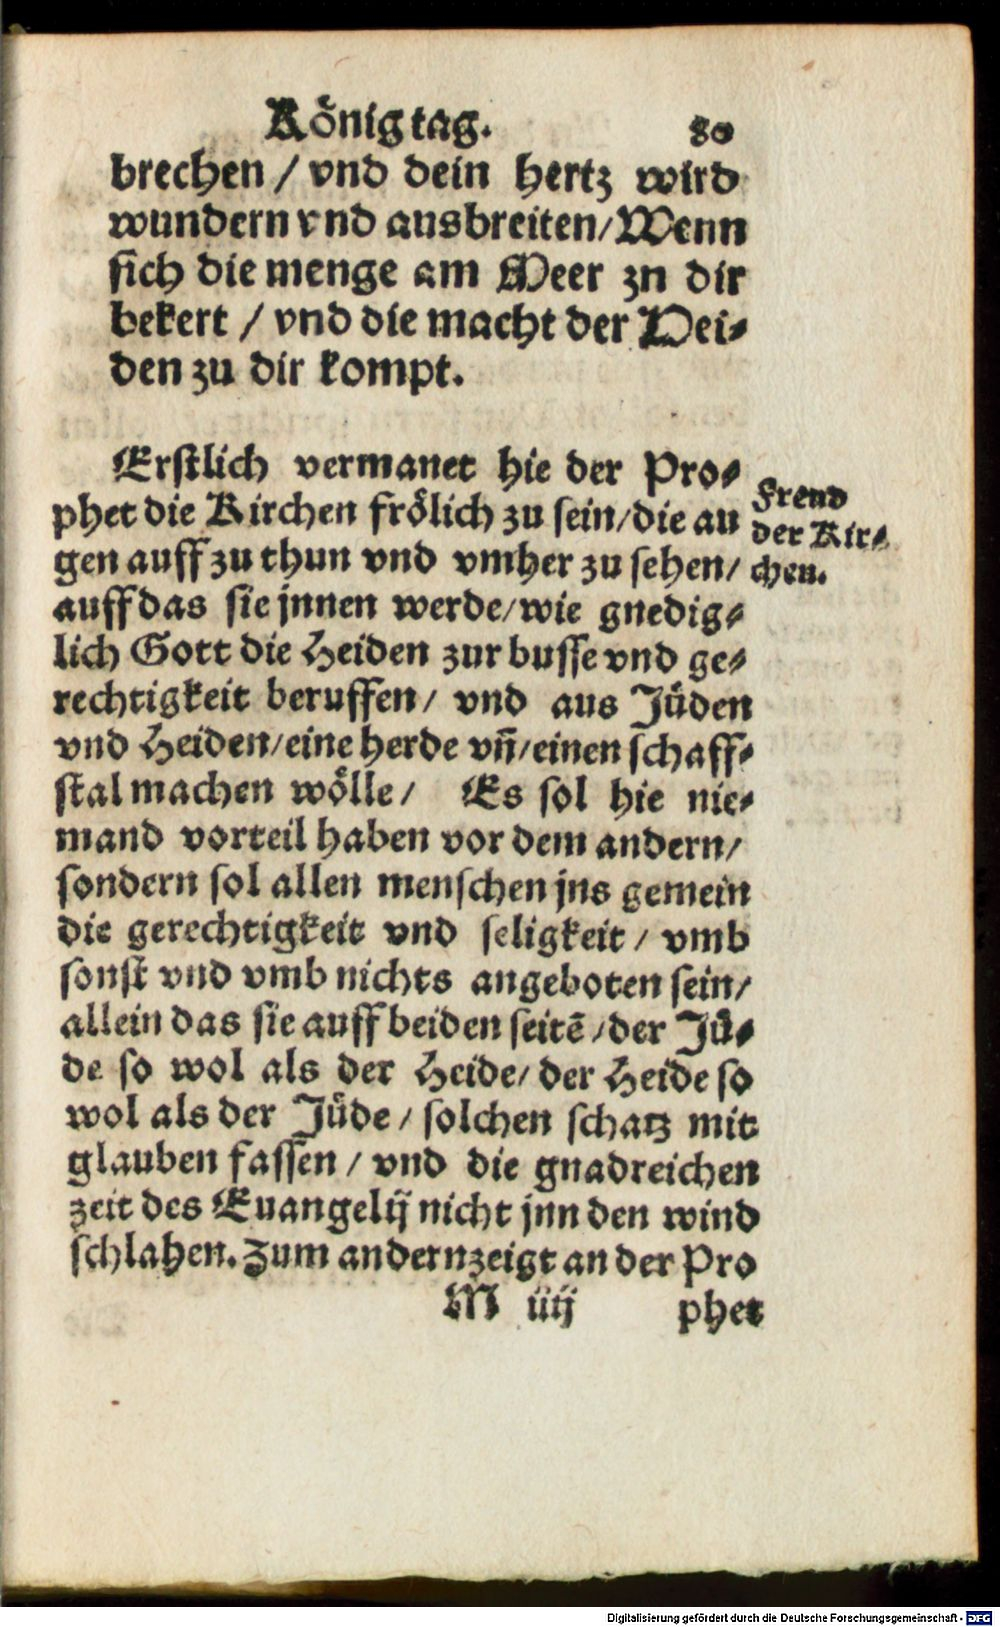 Koͤnigtag. 80
brechen / vnd dein hertz wird
wundern vnd ausbreiten / Wenn
sich die menge am Meer zu dir
bekert / vnd die macht der Hei⸗
den zu dir kompt.
Erstlich vermanet hie der Pro⸗
phet die Kirchen froͤlich zu sein / die au
gen auff zu thun vnd vmher zu sehen /
auff das sie jnnen werde / wie gnedig⸗
lich Gott die Heiden zur busse vnd ge⸗
rechtigkeit beruffen / vnd aus Juͤden
vnd Heiden / eine herde vn̄ / einen schaff⸗
stal machen woͤlle / Es sol hie nie⸗
mand vorteil haben vor dem andern /
sondern sol allen menschen jns gemein
die gerechtigkeit vnd seligkeit / vmb
sonst vnd vmb nichts angeboten sein /
allein das sie auff beiden seitē / der Juͤ⸗
de so wol als der Heide / der Heide so
wol als der Juͤde / solchen schatz mit
glauben fassen / vnd die gnadreichen
zeit des Euangelij nicht jnn den wind
schlahen. Zum andern zeigt an der Pro
M iiij phet
Freud
der Kir⸗
chen.
Digitalisierung gefördert durch die Deutsche Forschungsgemeinschaft - DFG